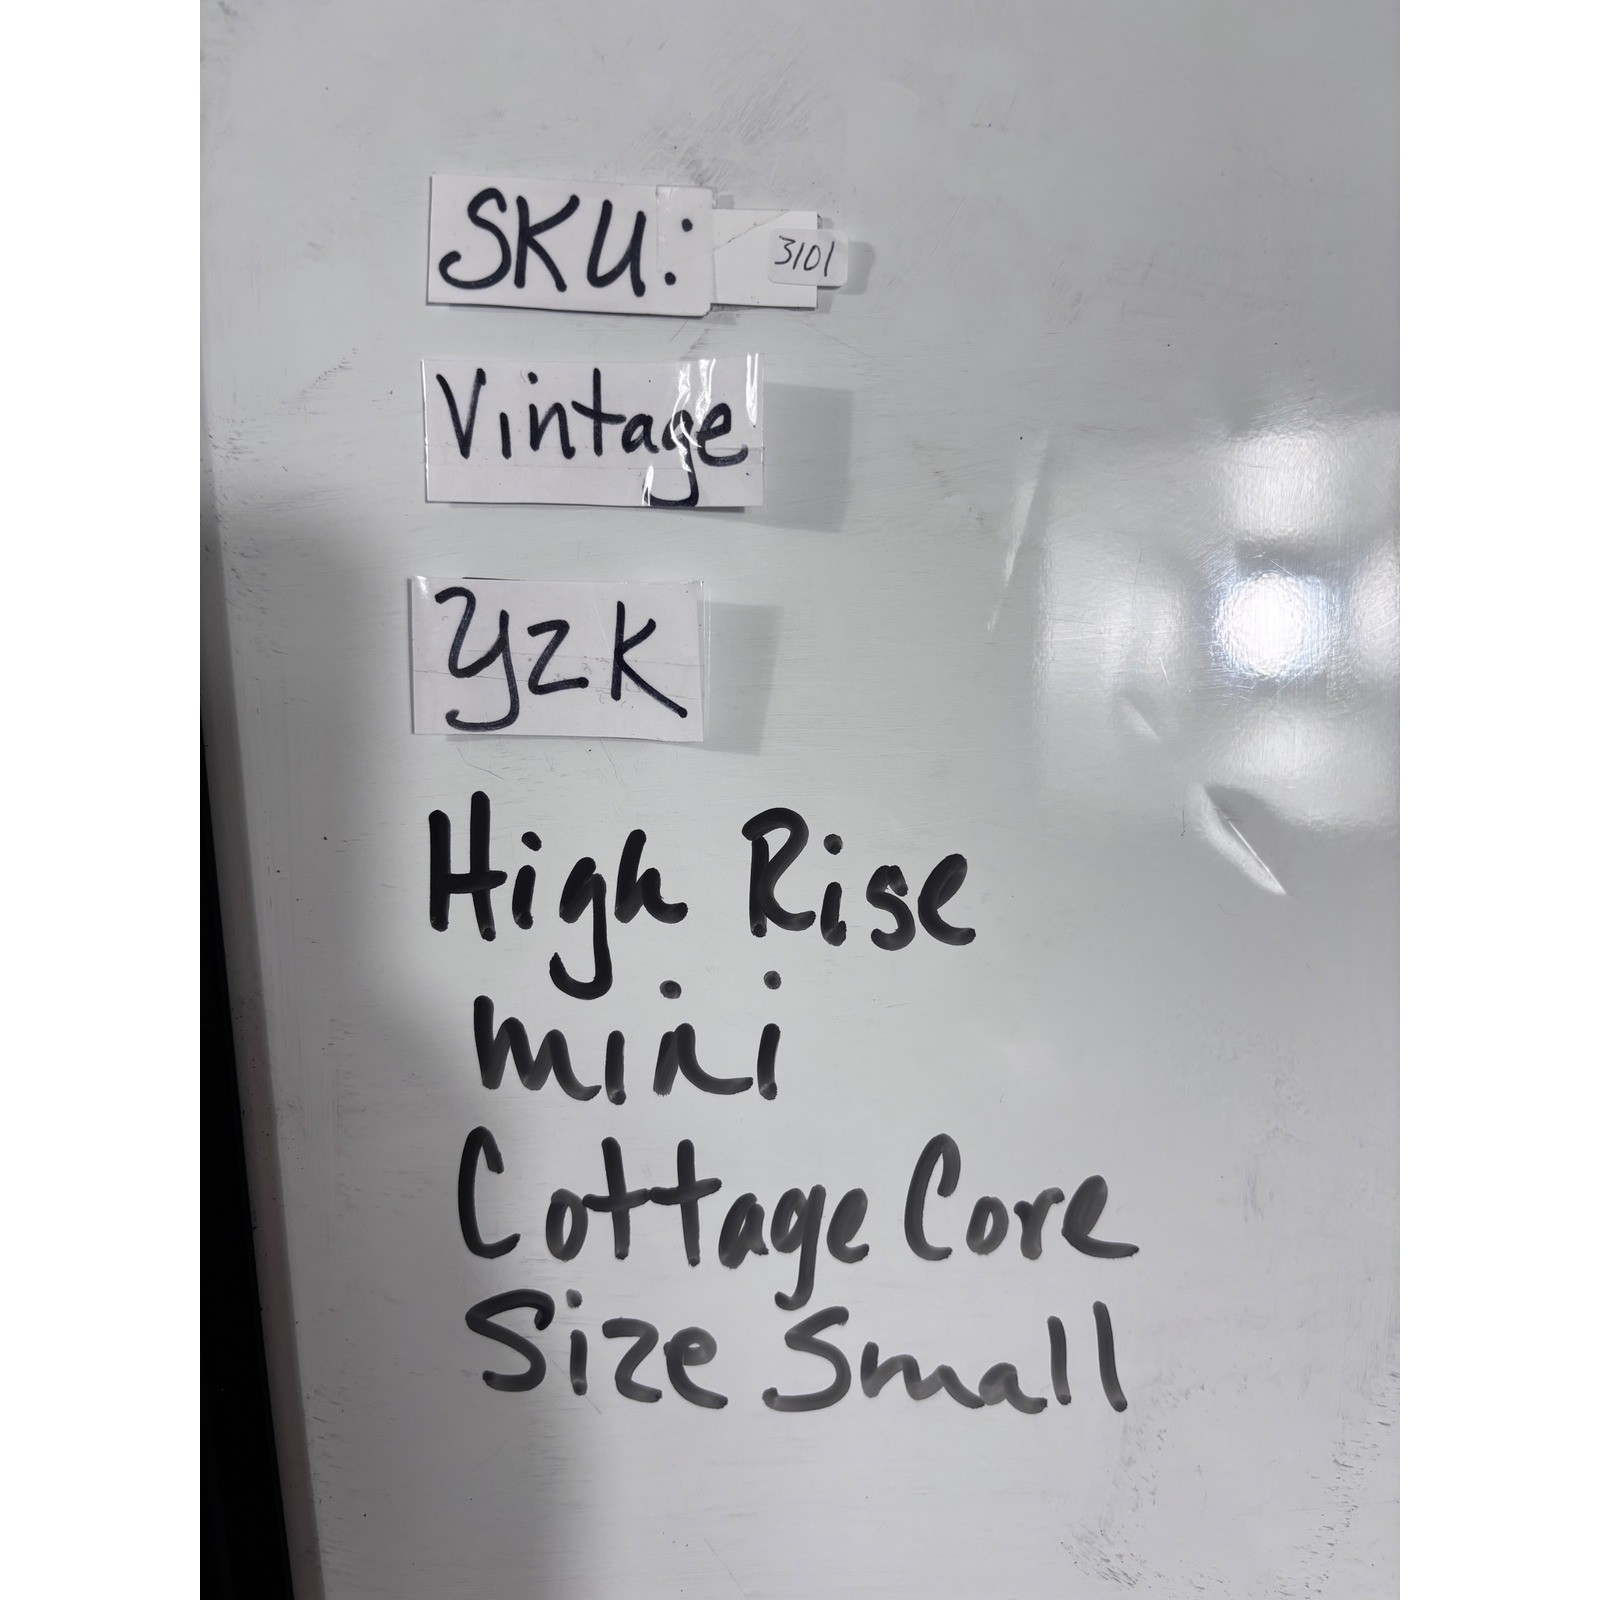 SKU: 3101
Vintage
Y2K
High Rise
mini
Cottage Core
Size Small